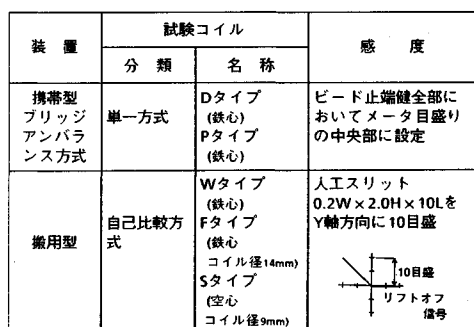 装 置
試験コイル
感 度
分 類
名 称
携帯型
ブリッジ
アンバラ
ンス方式
単一方式
Dタイプ
(鉄心)
Pタイプ
(鉄心)
ビード止端健全部に
おいてメータ目盛り
の中央部に設定
搬用型
自己比較方
式
Wタイプ
(鉄心)
Fタイプ
(鉄心
コイル径14mm)
Sタイプ
(空心
コイル径9mm)
人工スリット
0.2W×2.0H×10Lを
Y軸方向に10目盛
10目盛
リフトオフ
信号